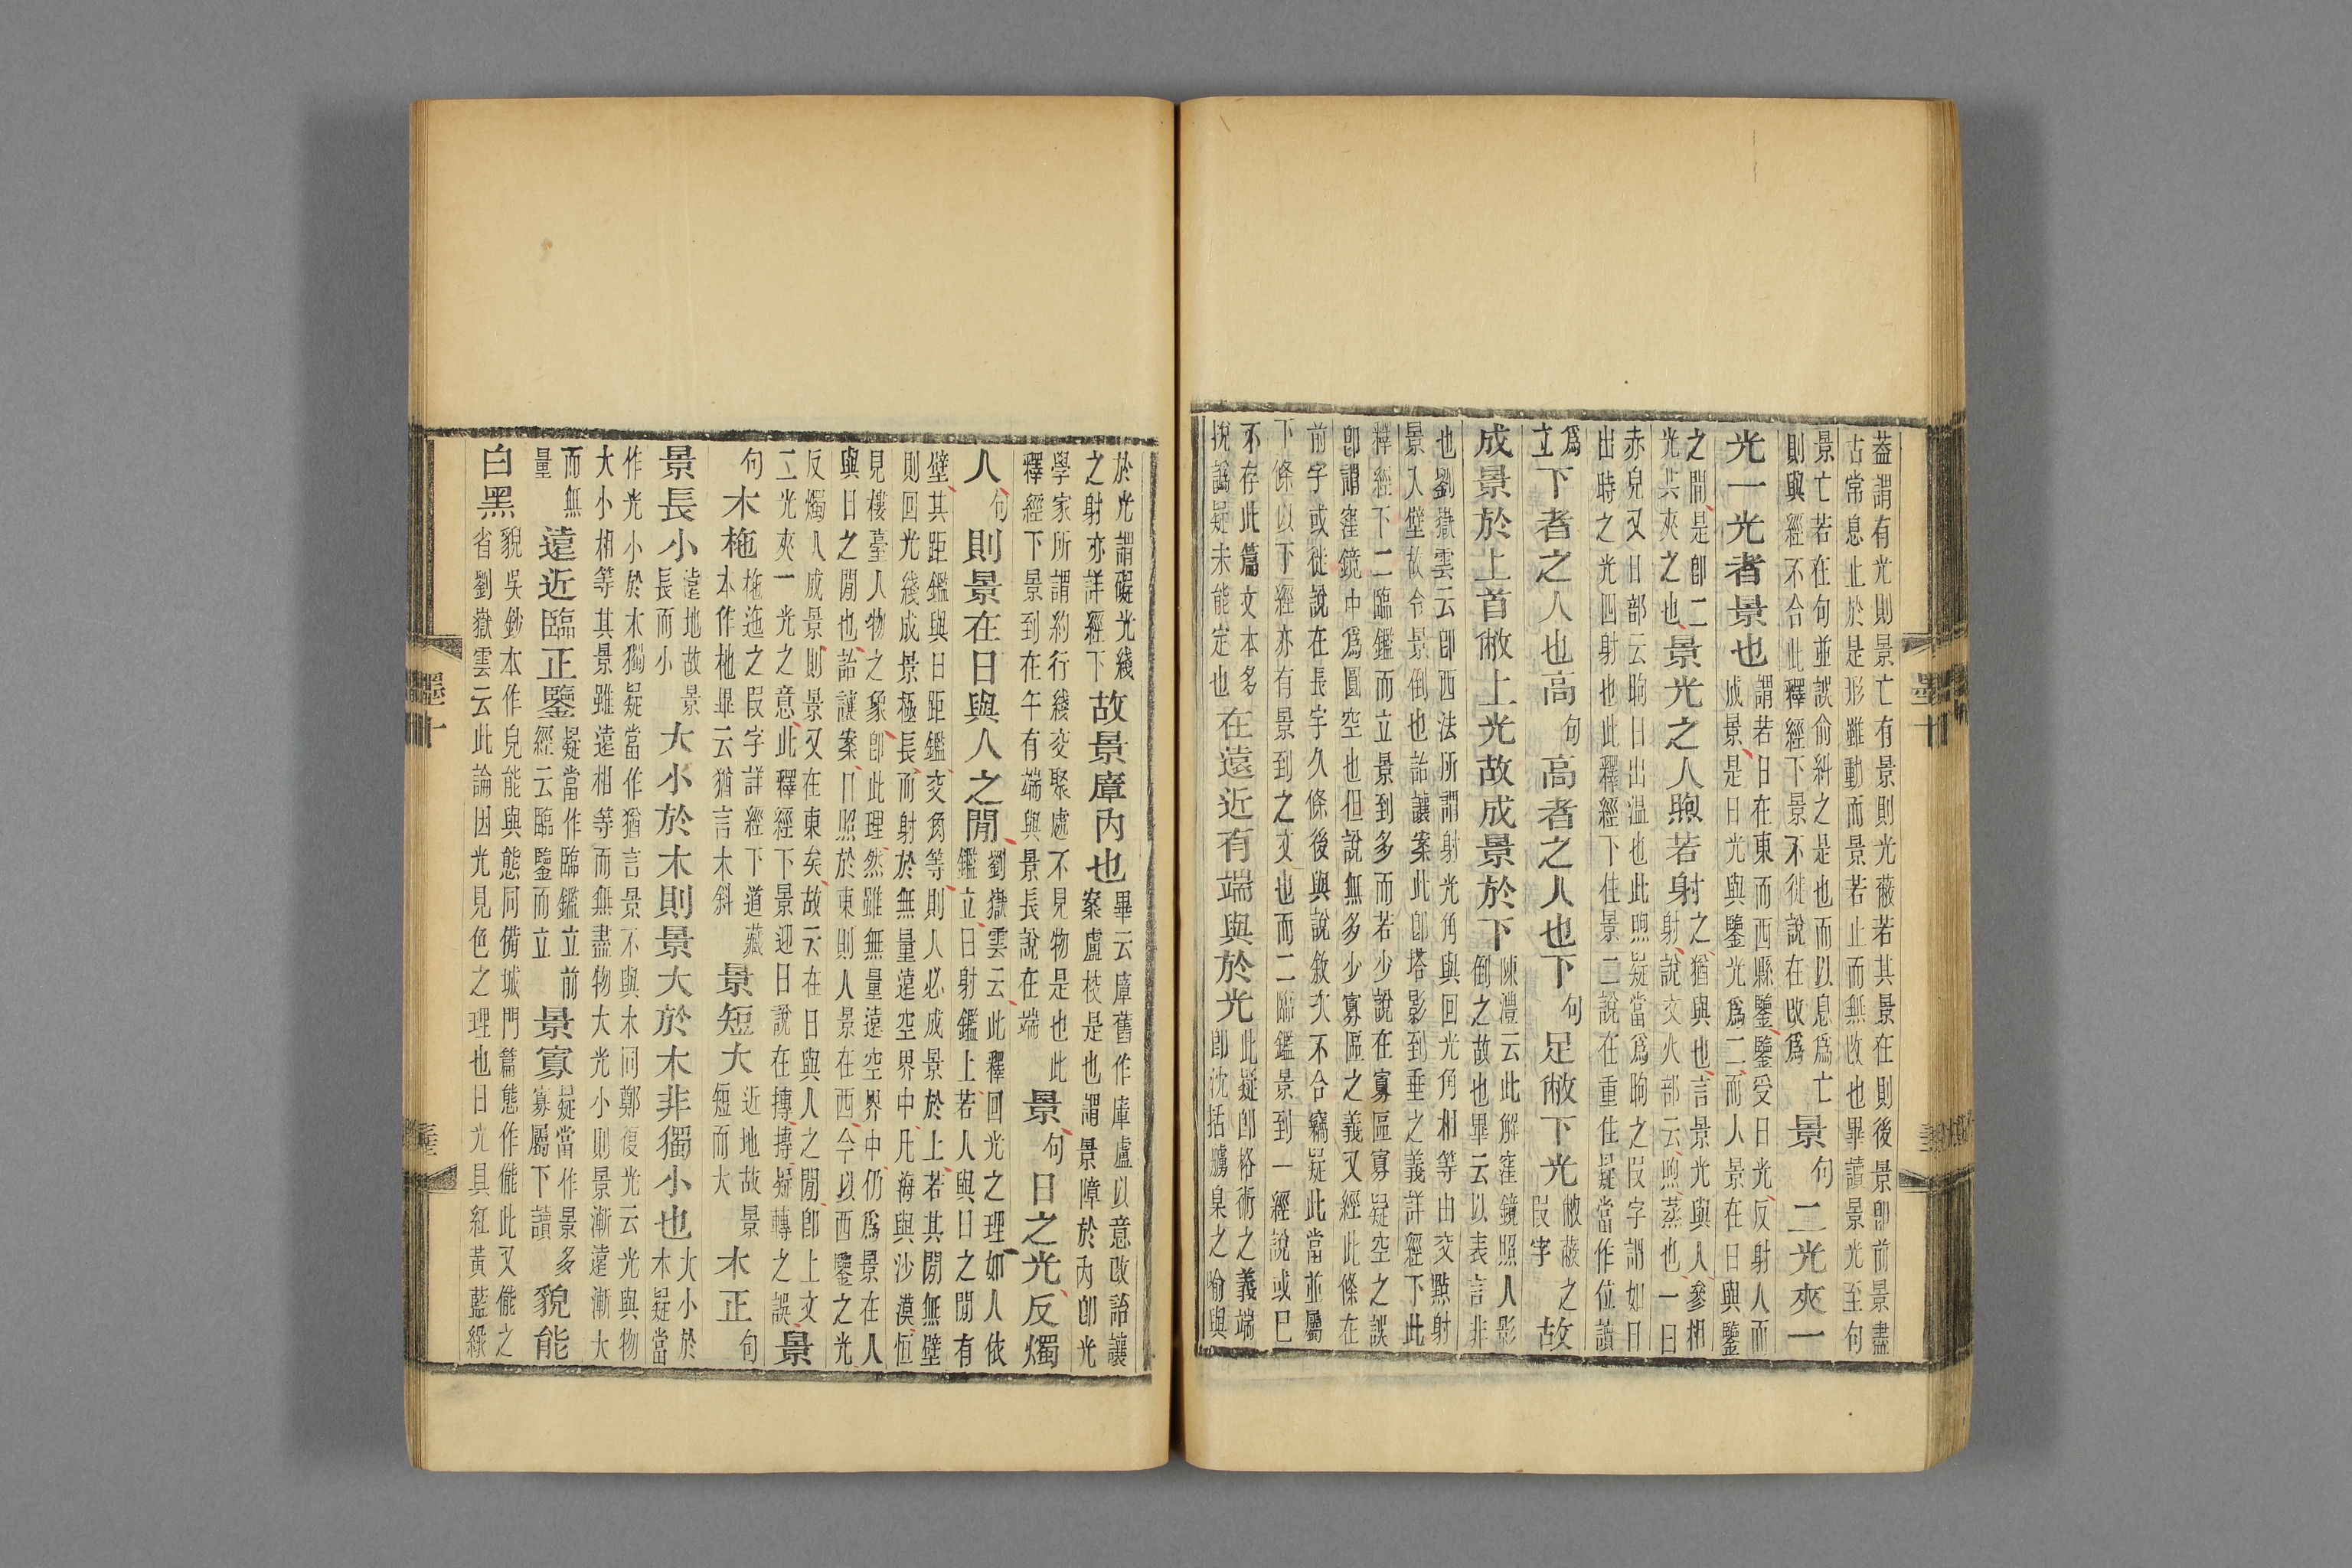 葢謂有光則景亡有景則光蔽若其景在則後景卽前景盡
古常息止於是形雖動而景若止而無改也畢讀景光至句
景亡若在句並誤俞糾之是也而以息爲亡
則與經不合此釋經下景不徙說在改爲
景句二光夾一
光一光者景也
謂若日在東而西縣鑒鑒受日光反射人而
成景是日光與鑒光爲二而人景在日與鑒
之閒是卽二
光共夾之也
景光之人煦若射
之猶與也言景光與人參相
射說文火部云煦蒸也一曰
赤皃又日部云昫日出温也此煦疑當爲昫之叚字謂如日
出時之光四射也此釋經下住景二說在重住疑當作位讀
爲
立
下者之人也高句高者之人也下句足敝下光
敝蔽之
叚字
故
成景於上首敝上光故成景於下
陳澧云此解窪鏡照人影
倒之故也畢云以表言非
也劉嶽雲云卽西法所謂射光角與回光角相等由交點射
景入壁故令景倒也詒讓案此卽塔影到垂之義詳經下此
釋經下二臨鑑而立景到多而若少說在寡區寡疑空之誤
卽謂窪鏡中爲圓空也但說無多少寡區之義又經此條在
前宇或徙說在長宇久條後與說敘次不合竊疑此當並屬
下條以下經亦有景到之文也而二臨鑑景到一經說或已
不存此篇文本多
捝譌疑未能定也
在遠近有端與於光
此疑卽格術之義端
卽沈括腰臬之喻與
墨十
於光謂礙光綫
之射亦詳經下
故景㢓內也
畢云㢓舊作庫盧以意改詒讓
案盧校是也謂景障於內卽光
學家所謂約行綫交聚處不見物是也此
釋經下景到在午有端與景長說在端
景句日之光反燭
人句則景在日與人之閒
劉嶽雲云此釋回光之理如人依
鑑立日射鑑上若人與日之閒有
壁其距鑑與日距鑑交角等則人必成景於上若其閒無壁
則回光綫成景極長而射於無量遠空界中凡海與沙漠恒
見樓臺人物之象卽此理然雖無量遠空界中仍爲景在人
與日之閒也詒讓案日照於東則人景在西今以西鑒之光
反燭人成景則景又在東矣故云在日與人之閒卽上文
二光夾一光之意此釋經下景迎日說在摶摶疑轉之誤
景
句木杝
杝迤之叚字詳經下道藏
本作柂畢云猶言木斜
景短大
近地故景
短而大
木正句
景長小
遠地故景
長而小
大小於木則景大於木非獨小也
大小於
木疑當
作光小於木獨疑當作猶言景不與木同鄭復光云光與物
大小相等其景雖遠相等而無盡物大光小則景漸遠漸大
而無
量
遠近臨正鑒
疑當作臨鑑立前
經云臨鑒而立
景寡
疑當作景多
寡屬下讀
貌能
白黑
貌吳鈔本作皃能與態同備城門篇態作㑷此又㑷之
省劉嶽雲云此論因光見色之理也日光具紅黃藍綠
墨十